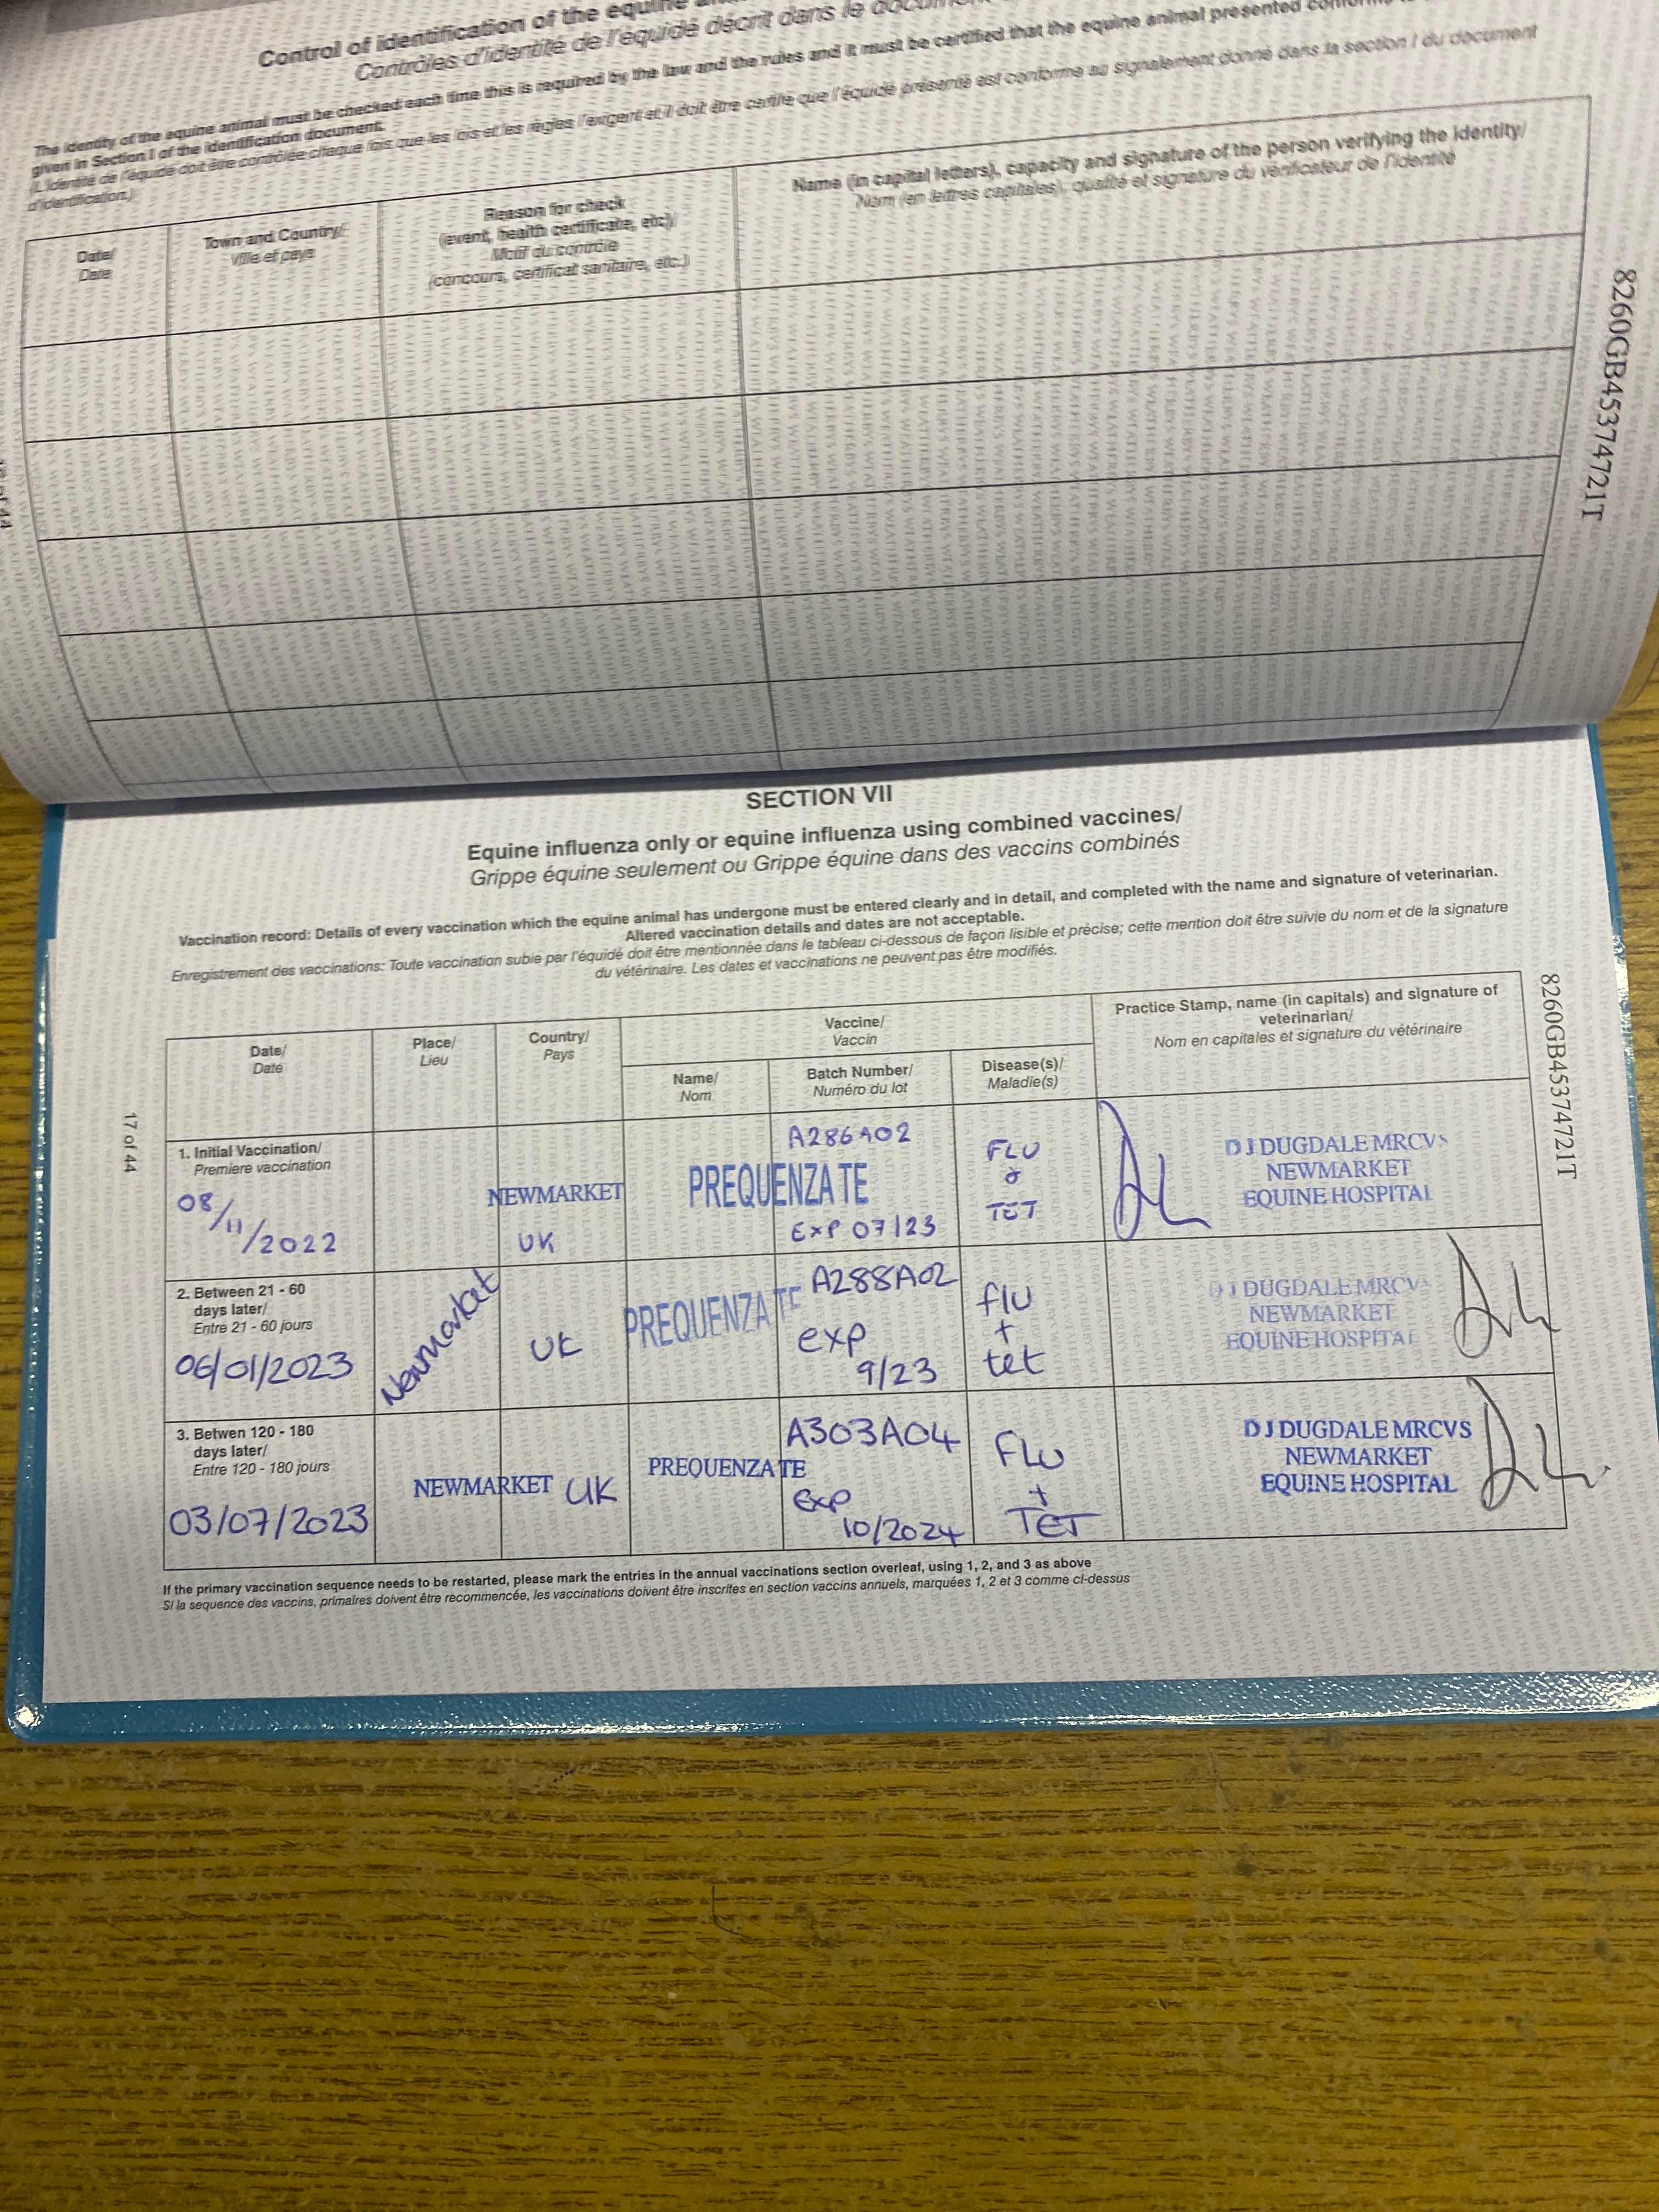 Control of identification of the equine
Contrôles d'identité de l'équidé décrit dans le
The identity of the equine animal must be checked each time this is required by the law and the rules and it must be certified that the equine animal presented
given in Section I of the identification document.
(L'identité de l'équidé doit être contrôlée chaque fois que les lois et les règles l'exigent et il doit être certifié que l'équidé présenté est conforme au signalement donné dans la section I du document
d'identification.)
Date/
Date
Town and Country/
Ville et pays
Reason for check
(event, health certificate, etc)/
Motif du contrôle
(concours, certificat sanitaire, etc.)
Name (in capital letters), capacity and signature of the person verifying the identity/
Nom (en lettres capitales), qualité et signature du vérificateur de l'identité
8260GB45374721T
SECTION VII
Equine influenza only or equine influenza using combined vaccines/
Grippe équine seulement ou Grippe équine dans des vaccins combinés
Vaccination record: Details of every vaccination which the equine animal has undergone must be entered clearly and in detail, and completed with the name and signature of veterinarian.
Altered vaccination details and dates are not acceptable.
Enregistrement des vaccinations: Toute vaccination subie par l'équidé doit être mentionnée dans le tableau ci-dessous de façon lisible et précise; cette mention doit être suivie du nom et de la signature
du vétérinaire. Les dates et vaccinations ne peuvent pas être modifiés.
Date/
Date
Place/
Lieu
Country/
Pays
Vaccine/
Vaccin
Name/
Nom
Batch Number/
Numéro du lot
Disease(s)/
Maladie(s)
Practice Stamp, name (in capitals) and signature of
veterinarian/
Nom en capitales et signature du vétérinaire
1. Initial Vaccination/
Premiere vaccination
08/11/2022
NEWMARKET
UK
PREQUENZA TE
A286A02
EXP 07/23
FLU
&
TET
D J DUGDALE MRCVS
NEWMARKET
EQUINE HOSPITAL
2. Between 21 - 60
days later/
Entre 21 - 60 jours
06/01/2023
Newmarket
UK
PREQUENZA TE
A288A02
exp
9/23
flu
+
tet
D J DUGDALE MRCVS
NEWMARKET
EQUINE HOSPITAL
3. Betwen 120 - 180
days later/
Entre 120 - 180 jours
03/07/2023
NEWMARKET UK
PREQUENZA TE
A303A04
Exp
10/2024
FLU
+
TET
D J DUGDALE MRCVS
NEWMARKET
EQUINE HOSPITAL
If the primary vaccination sequence needs to be restarted, please mark the entries in the annual vaccinations section overleaf, using 1, 2, and 3 as above
Si la sequence des vaccins, primaires doivent être recommencée, les vaccinations doivent être inscrites en section vaccins annuels, marquées 1, 2 et 3 comme ci-dessus
17 of 44
8260GB45374721T